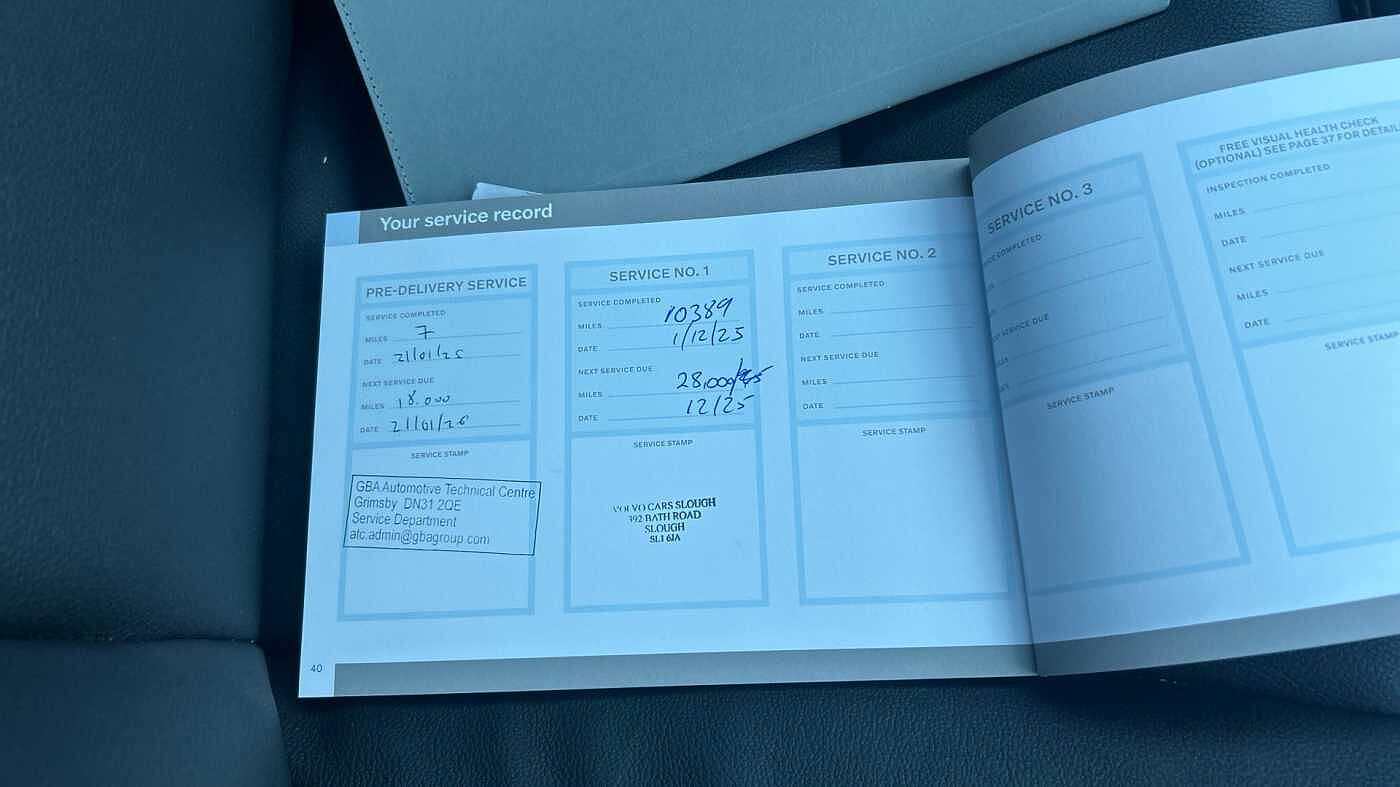 Your service record
PRE-DELIVERY SERVICE
SERVICE COMPLETED
MILES 7
DATE 21/01/25
NEXT SERVICE DUE
MILES 18.000
DATE 21/01/26
SERVICE STAMP
GBA Automotive Technical Centre
Grimsby DN31 2QE
Service Department
atc.admin@gbagroup.com
SERVICE NO. 1
SERVICE COMPLETED
MILES 10389
DATE 1/12/25
NEXT SERVICE DUE
MILES 28,000
DATE 12/25
SERVICE STAMP
VOLVO CARS SLOUGH
392 BATH ROAD
SLOUGH
SL1 6JA
SERVICE NO. 2
SERVICE COMPLETED
MILES
DATE
NEXT SERVICE DUE
MILES
DATE
SERVICE STAMP
SERVICE NO. 3
COMPLETED
SERVICE DUE
SERVICE STAMP
FREE VISUAL HEALTH CHECK
(OPTIONAL) SEE PAGE 37 FOR
INSPECTION COMPLETED
MILES
DATE
NEXT SERVICE DUE
MILES
DATE
SERVICE STAMP
40